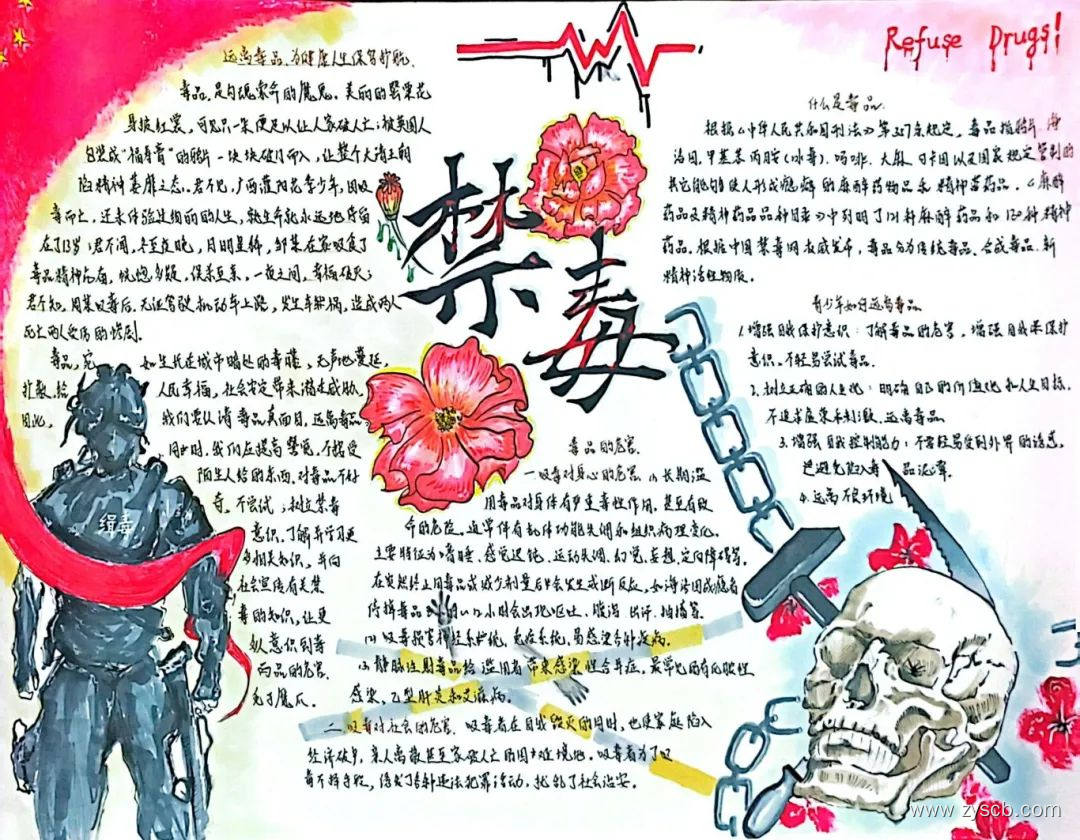 Refuse Drugs!
禁毒
远离毒品,为健康人生保驾护航.
毒品,是勾魂索命的魔鬼。美丽的罂粟花
身披红裳,可见只一朵便足以让人家破人亡;被英国人
包装成“福寿膏”的鸦片一块块破门而入,让整个大清王朝
陷精神萎靡之态。君不见,广西灌阳花季少年,因吸
毒而亡,还未体验这绚丽的人生,就生命就永远地停留
在了13岁;君不闻,
毒品精神
君不知,周某吸毒后,无证驾驶机动车上路,发生车祸,造成两人
死亡两人受伤的惨剧.
毒品,宛如生长在城市暗处的毒瘤,无声地蔓延,
扩散,给人民幸福,社会安定带来潜在威胁,
因此,我们要认清毒品真面目,远离毒品
同时,我们应提高警觉,不接受
陌生人给的东西,对毒品不好
奇,不尝试;树立禁毒
意识,了解并学习更
多相关知识,并向
社会宣传有关禁
毒的知识,让更
多人意识到毒
品的危害,
魔爪.
缉毒
什么是毒品.
根据《中华人民共和国刑法》第357条规定,毒品指鸦片,海
洛因,甲基苯丙胺(冰毒),吗啡,大麻,可卡因以及国家规定管制的
其它能够使人形成瘾癖的麻醉药物品和精神药品,《麻醉
药品及精神药品品种目录》中列明了121种麻醉药品和130种精神
药品.根据中国禁毒网权威发布,毒品分为传统毒品,合成毒品,新
精神活性物质。
青少年如何远离毒品
1.增强自我保护意识:了解毒品的危害,增强自我保护
意识,不轻易尝试毒品.
2.树立正确的人生观:明确自己的价值观和人生目标,
不追求虚荣和刺激,远离毒品
3.增强自我控制能力:不要轻易受到外界的诱惑,
避免陷入毒品泥潭.
4.远离不良环境
毒品的危害.
一.吸毒对身心的危害.(1)长期滥
用毒品对身体有严重毒性作用,甚至有致
命的危险,通常伴有机体功能失调和组织病理变化.
主要特征为嗜睡,感觉迟钝,运动失调,幻觉,妄想,定向障碍等.
在突然终止用毒品或减少剂量后会发生戒断反应,如海洛因成瘾者
停掉毒品 小时会出现呕吐,腹泻,出汗,抽搐等.
(2)吸毒损害神经系统,免疫系统,易感染各种疾病.
(3)静脉注射毒品给滥用者带来感染性合并症,最常见的有化脓性
感染,乙型肝炎和艾滋病.
二.吸毒对社会的危害.吸毒者在自我毁灭的同时,也使家庭陷入
经济破产,亲人离散甚至家破人亡的困难境地,吸毒者为了吸
毒不择手段,诱发了各种违法犯罪活动,扰乱了社会治安.
www.zyscb.com